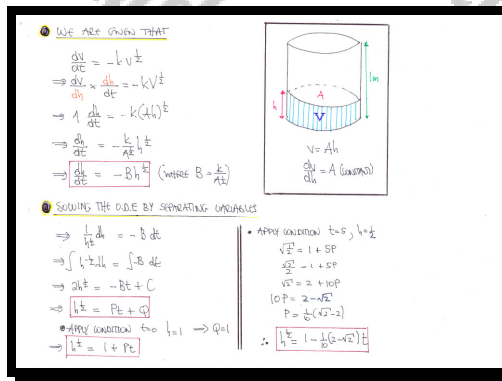 a) WE ARE GIVEN THAT
dV/dt = -kV^½
⇒ dV/dh × dh/dt = -kV^½
⇒ A dh/dt = -k(Ah)^½
⇒ dh/dt = -k/A^½ h^½
⇒ dh/dt = -Bh^½ (WHERE B = k/A^½)
1m
h
A
V
V = Ah
dV/dh = A (CONSTANT)
b) SOLVING THE O.D.E BY SEPARATING VARIABLES
⇒ 1/h^½ dh = -B dt
⇒ ∫ h^-½ dh = ∫ -B dt
⇒ 2h^½ = -Bt + C
⇒ h^½ = Pt + Q
• APPLY CONDITION t=0 h=1 ⇒ Q=1
⇒ h^½ = 1 + Pt
• APPLY CONDITION t=5, h=½
√½ = 1 + 5P
√2/2 = 1 + 5P
√2 = 2 + 10P
10P = 2 - √2
P = 1/10(√2 - 2)
∴ h^½ = 1 - 1/10(2-√2)t